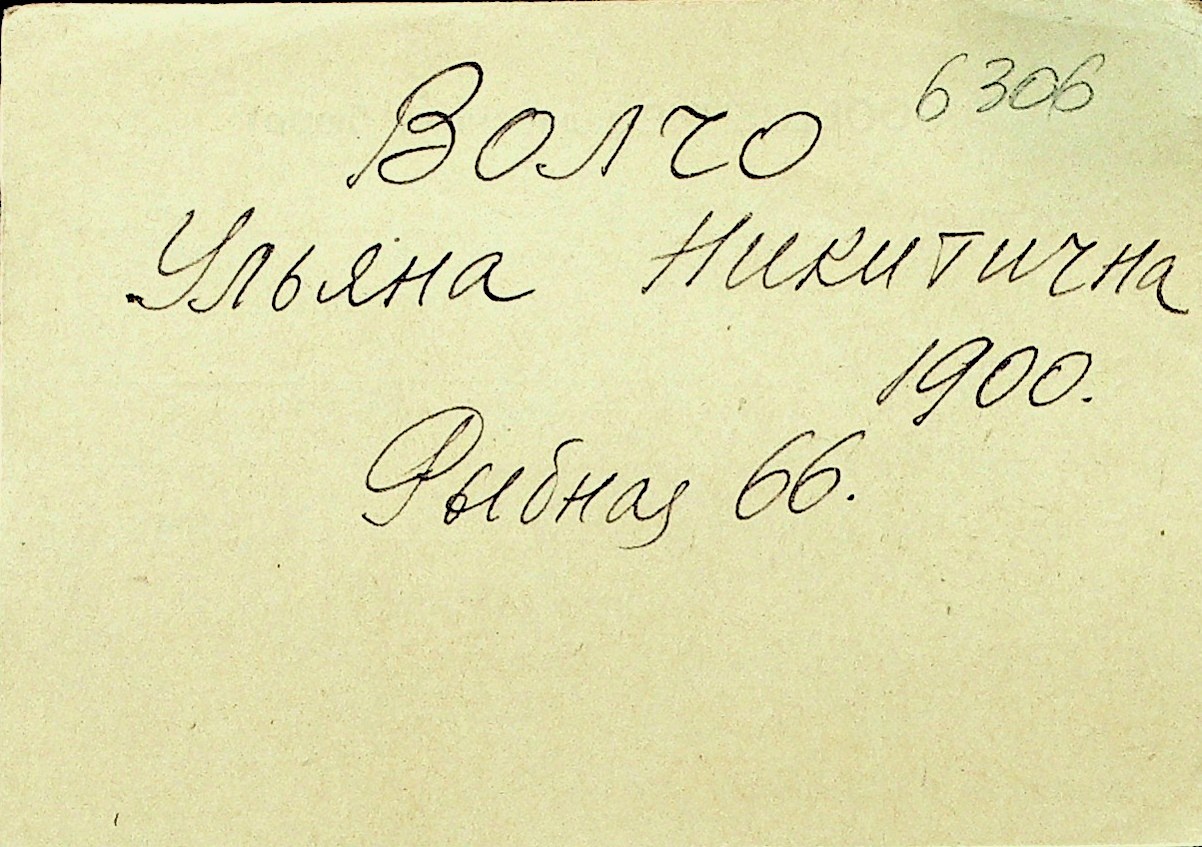 6306
Волчо
Ульяна Никитична
1900.
Рыбная 66.